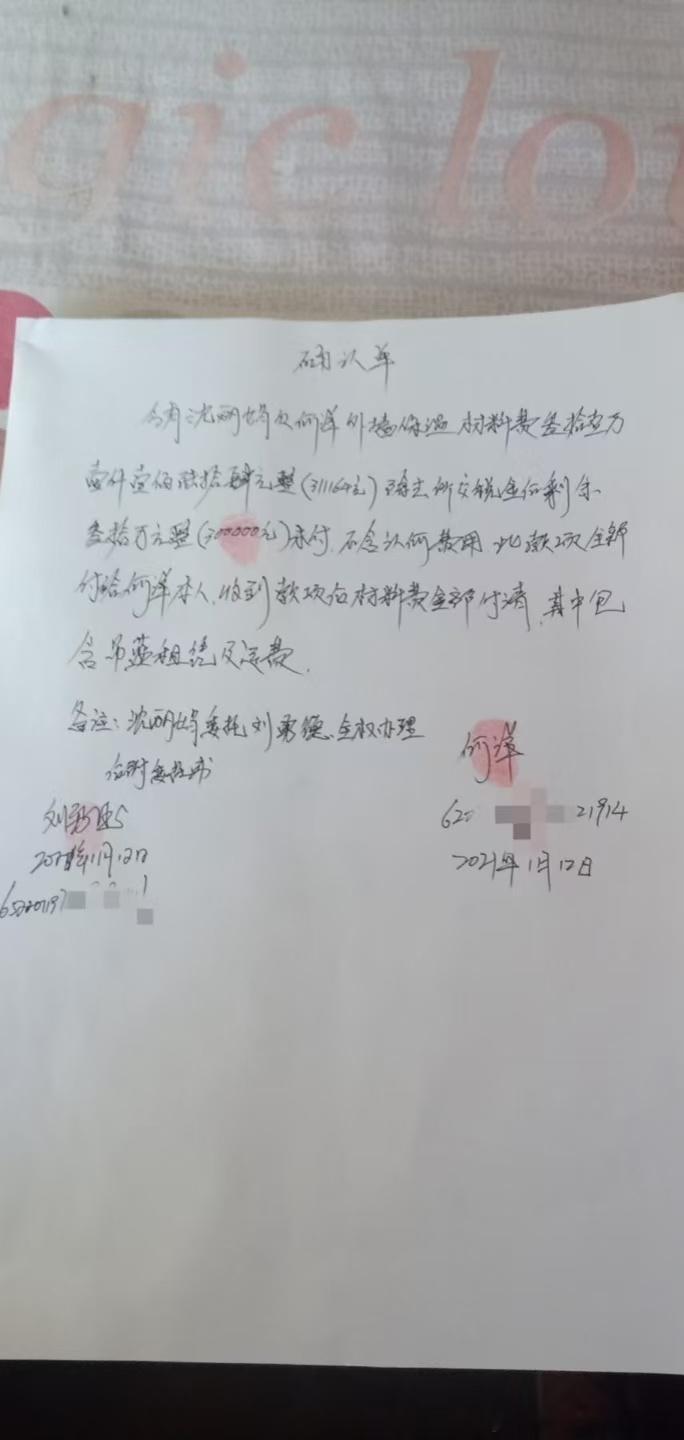 gic lou
确认单
今有:沈丽娟欠何洋外墙保温 材料费叁拾壹万
壹仟壹佰陆拾肆元整(311164元)除去所交税金后剩余
叁拾万元整(300000元)未付.不含认何费用.此款项全部
付给何洋本人.收到款项后材料费全部付清.其中包
含吊蓝租赁及运费.
备注:沈丽娟委托刘勇德.全权办理
何洋
62 21914
2021年1月12日
11月12日